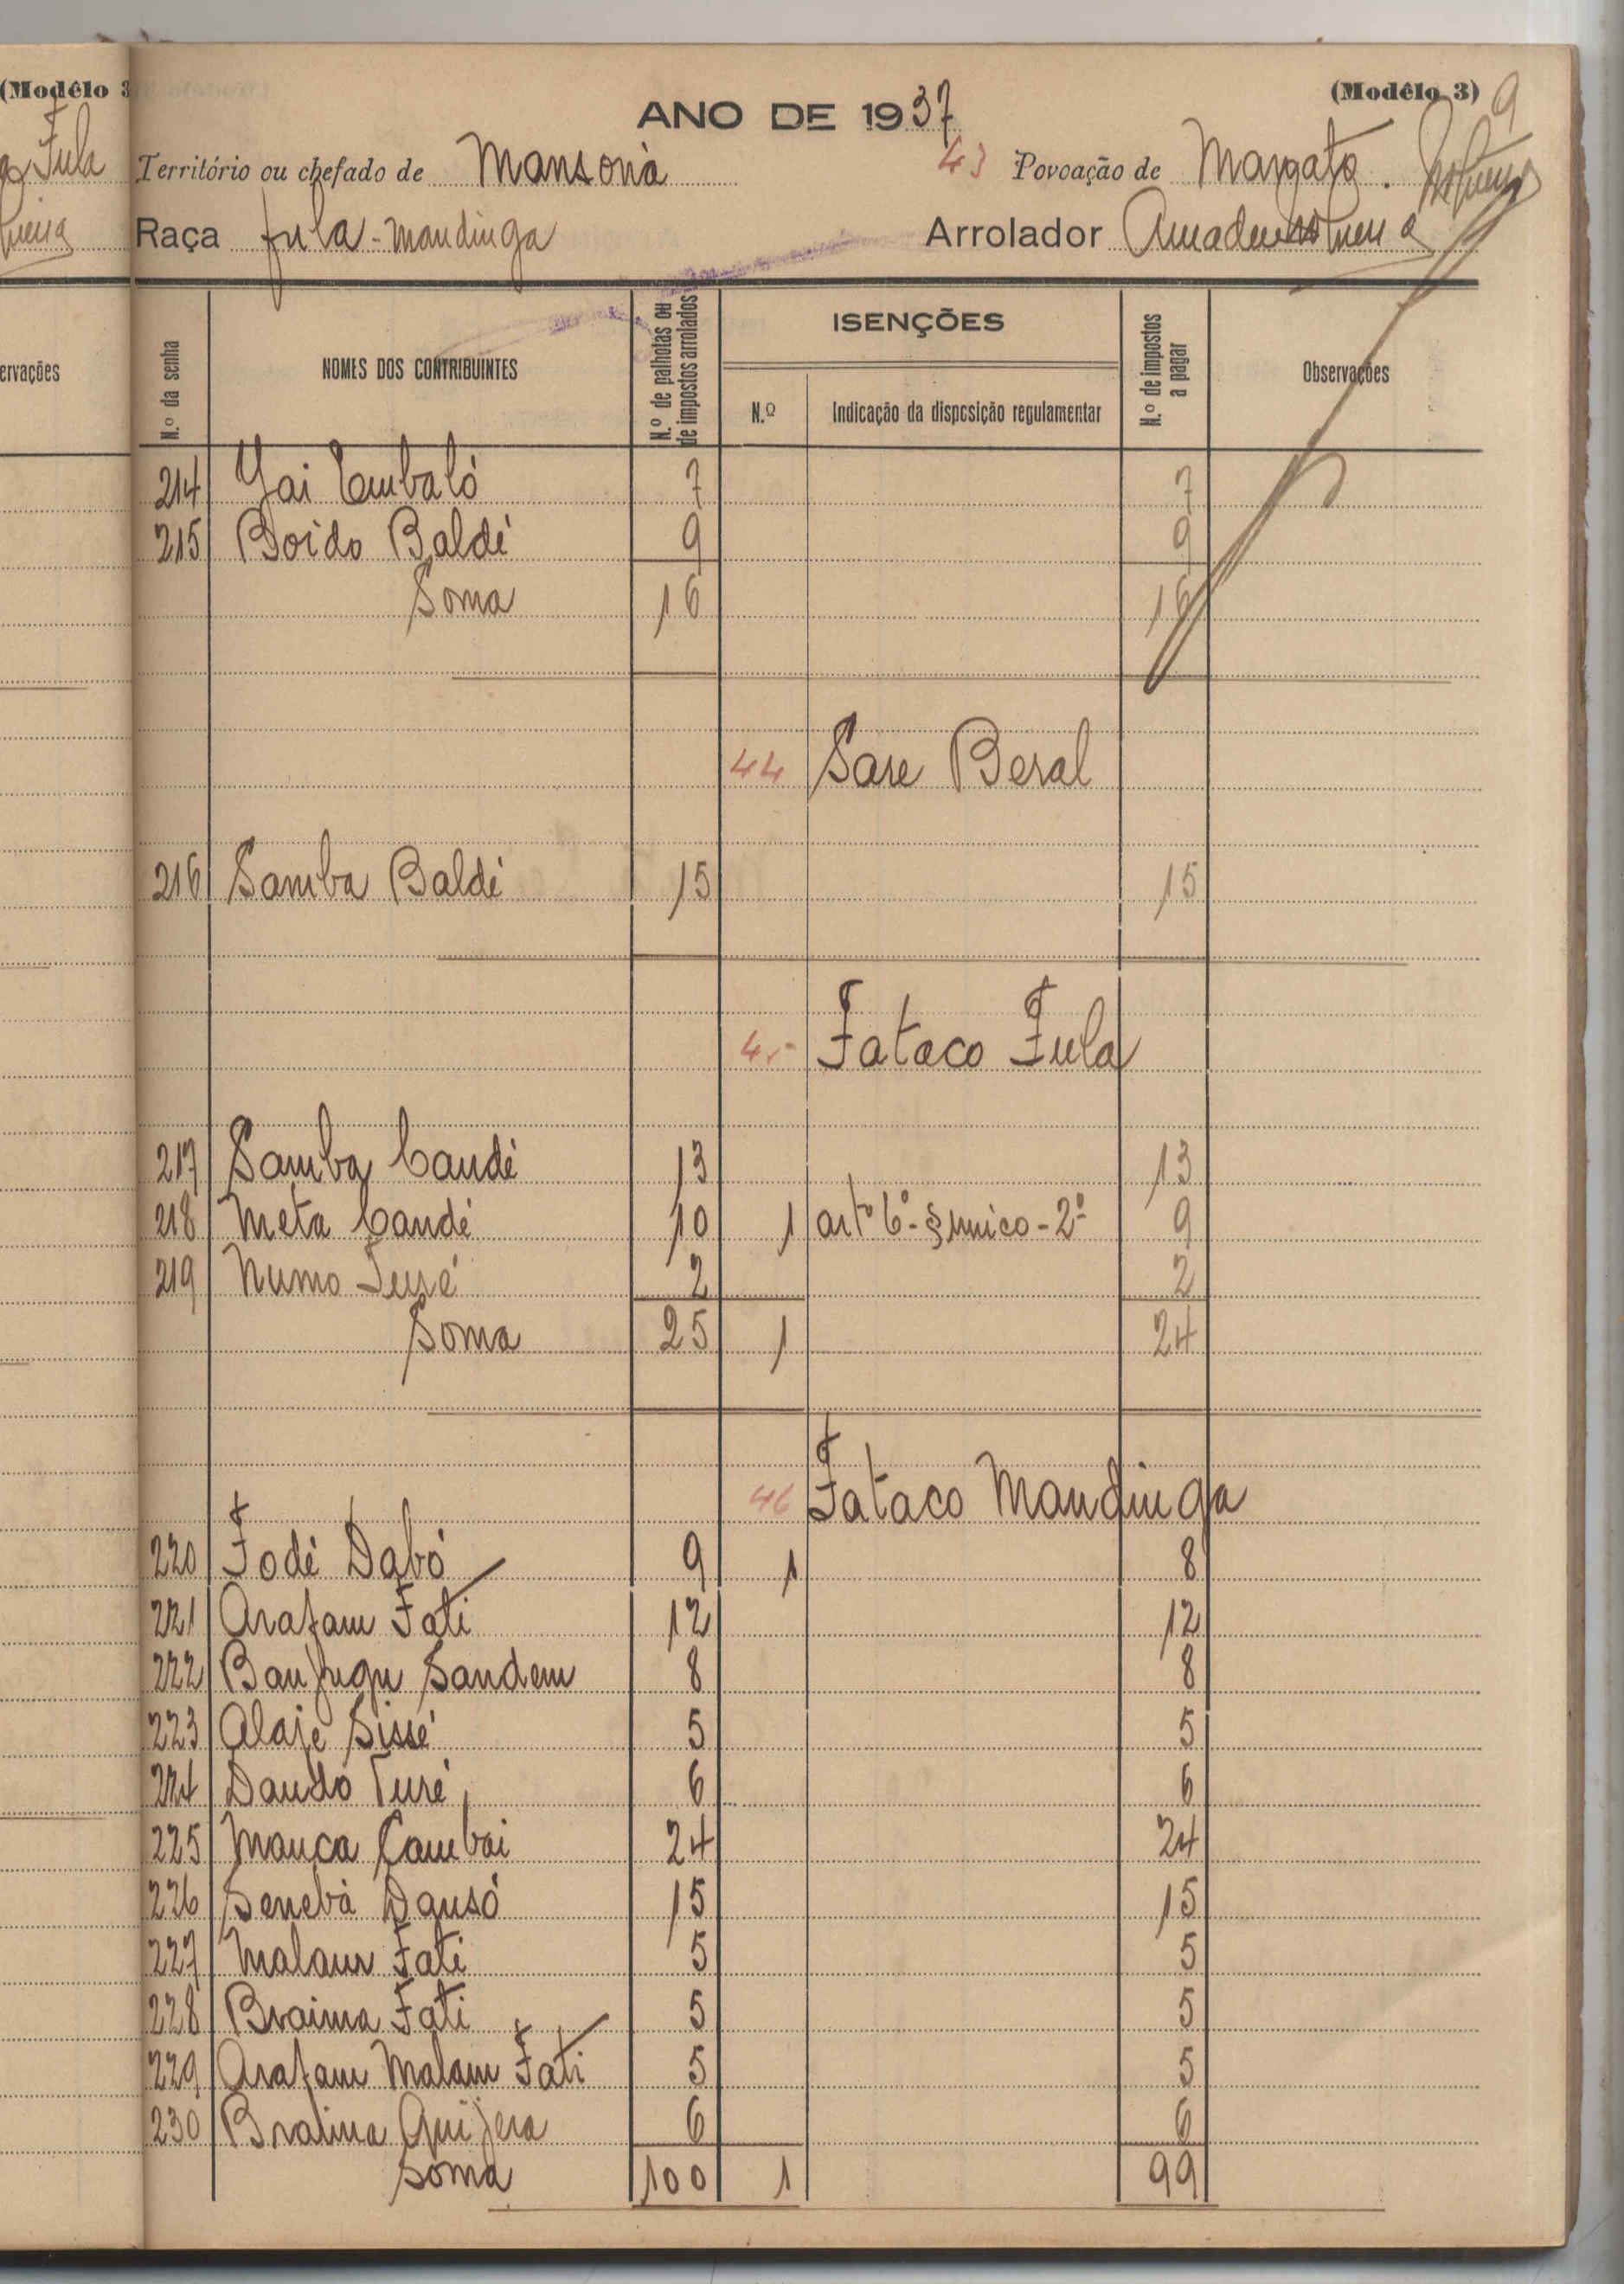 (Modêlo 3
(Modêlo 3) 9
Fula
ANO DE 1937
Território ou chefado de Mansonà 43 Povoação de Margato.
Raça fula-mandinga Arrolador Amadeu
ervações
N.º da senha NOMES DOS CONTRIBUINTES N.º de palhotas ou de impostos arrolados ISENÇÕES N.º de impostos a pagar Observações
N.º Indicação da disposição regulamentar
214 Iai Embaló 7 7
215 Boido Baldé 9 9
Soma 16 16
44 Sare Beral
216 Samba Baldé 15 15
45 Fataco Fula
217 Samba Candé 13 13
218 Meta Candé 10 1 artº 6º-§ unico-2º 9
219 Numo Turé 2 2
Soma 25 1 24
46 Fataco Mandinga
220 Fodé Dabó 9 1 8
221 Arafam Fati 12 12
222 Sandem 8 8
223 Alaje Sissé 5 5
224 Dando Turé 6 6
225 Manca Cambai 24 24
226 Senebà Dansó 15 15
227 Malam Fati 5 5
228 Braima Fati 5 5
229 Arafam Malam Fati 5 5
230 Braima Quijera 6 6
Soma 100 1 99